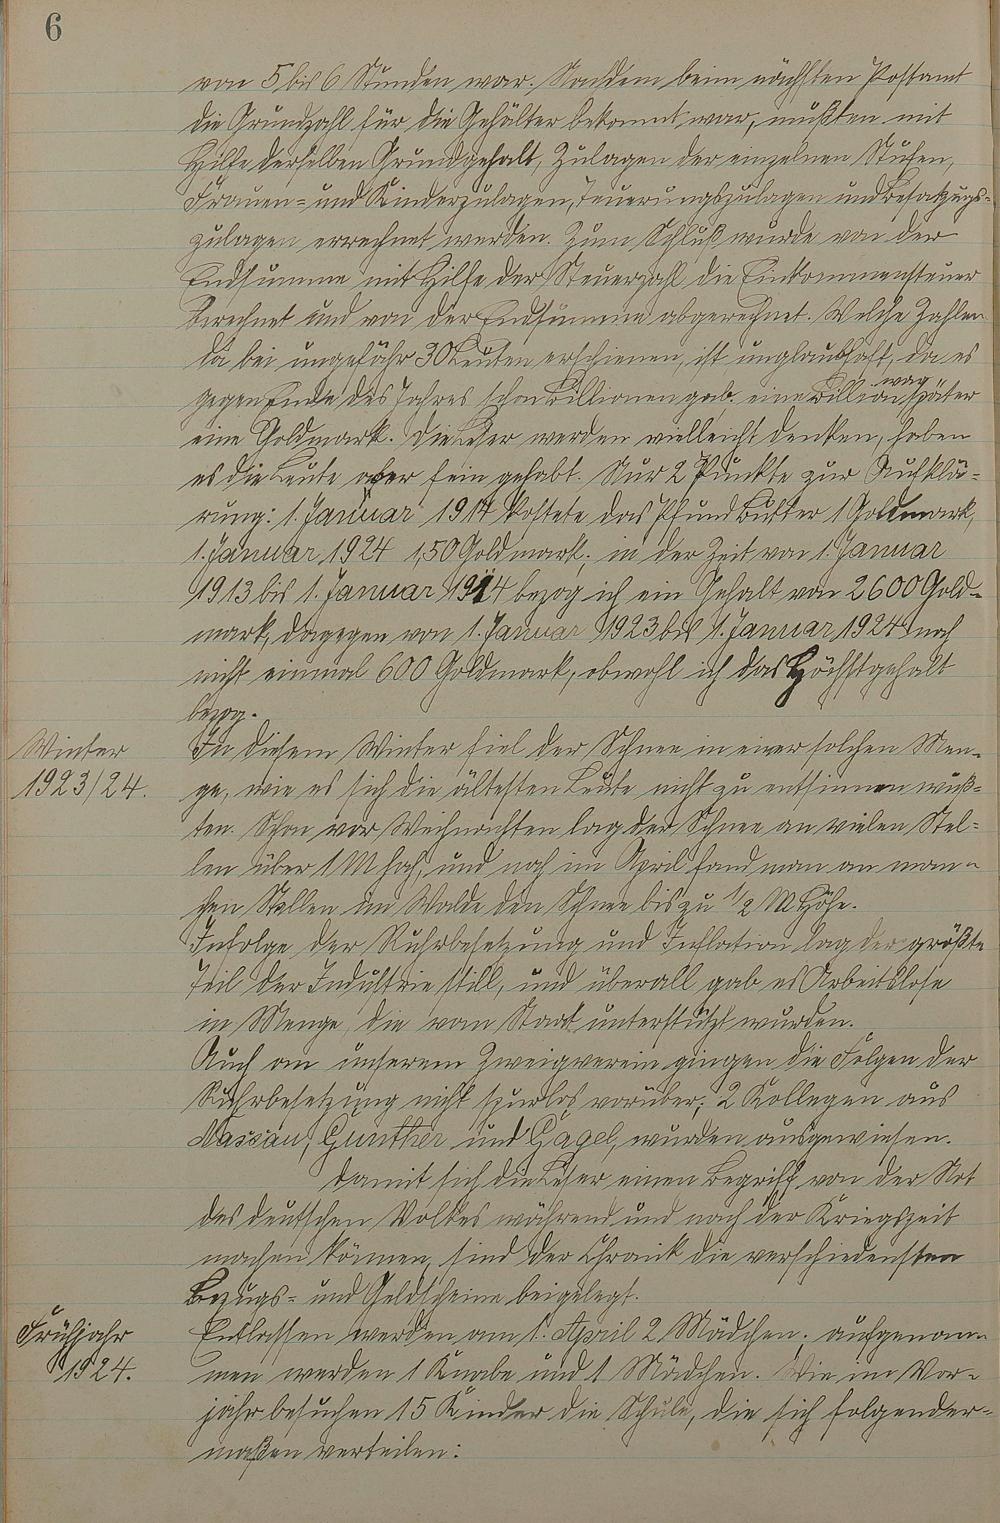 6
von 5 bis 6 Stunden war. Nachdem beim nächsten Postamt
die Grundzahl für die Gehälter bekannt war, mußten mit
Hilfe derselben Grundgehalt, Zulagen der einzelnen Stufen,
Frauen- und Kinderzulagen, Teuerungszulagen und Besatzungs-
zulagen errechnet werden. Zum Schluß wurde von der
Endsumme mit Hilfe der Steuerzahl die Einkommensteuer
berechnet und von der Endsumme abgerechnet. Welche Zahlen
da bei ungefähr 30 Leuten erschienen, ist unglaubhaft, da es
gegen Ende des Jahres schon Billionen gab. eine Billion war später
eine Goldmark. Die Leser werden vielleicht denken, haben
es die Leute aber fein gehabt. Nur 2 Punkte zur Aufklä-
rung: 1. Januar 1914 kostete das Pfund Butter 1 Goldmark,
1. Januar 1924 1,50 Goldmark; in der Zeit von 1. Januar
1913 bis 1. Januar 1914 bezog ich ein Gehalt von 2600 Gold-
mark, dagegen von 1. Januar 1923 bis 1. Januar 1924 noch
nicht einmal 600 Goldmark, obwohl ich das Höchstgehalt
bezog.
Winter
1923/24.
In diesem Winter fiel der Schnee in einer solchen Men-
ge, wie es sich die ältesten Leute nicht zu entsinnen wuß-
ten. Schon vor Weihnachten lag der Schnee an vielen Stel-
len über 1 M hoch, und noch im April fand man an man-
chen Stellen im Walde den Schnee bis zu 1/2 M Höhe.
Infolge der Ruhrbesetzung und Inflation lag der größte
Teil der Industrie still, und überall gab es Arbeitslose
in Menge, die vom Staat unterstützt wurden.
Auch an unserem Zweigverein gingen die Folgen der
Ruhrbesetzung nicht spurlos vorüber; 2 Kollegen aus
Nassau, Günther und Gagel, wurden ausgewiesen.
Damit sich die Leser einen Begriff von der Not
des deutschen Volkes während und nach der Kriegszeit
machen können, sind der Chronik die verschiedensten
Bezugs- und Geldscheine beigelegt.
Frühjahr
1924.
Entlassen werden am 1. April 2 Mädchen; aufgenom-
men werden 1 Knabe und 1 Mädchen. Wie im Vor-
jahr besuchen 15 Kinder die Schule, die sich folgender-
maßen verteilen: